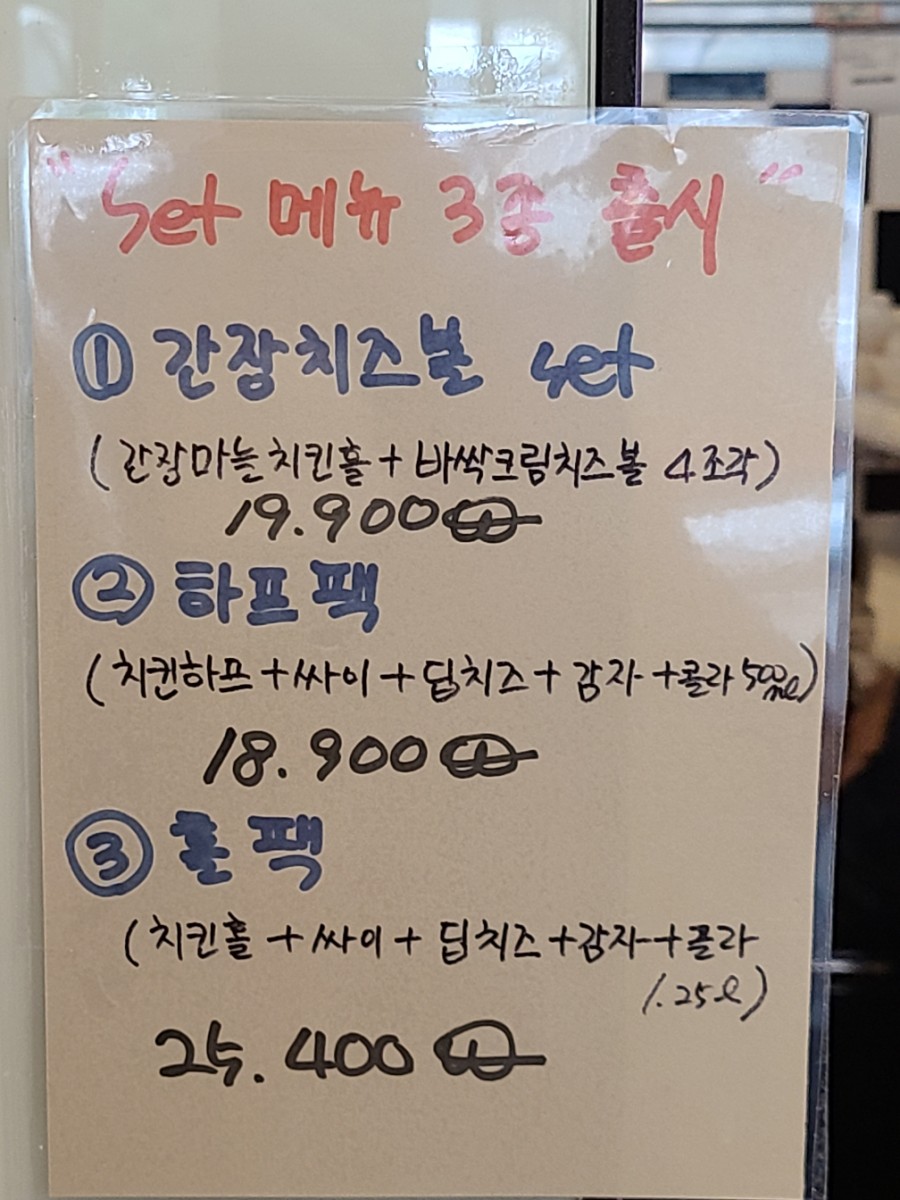 "Set 메뉴 3종 출시"
① 간장치즈볼 set
(간장마늘치킨홀+바싹크림치즈볼 4조각)
19.900₩
② 하프팩
(치퀸하프+싸이+딥치즈+감자+콜라 500ml)
18.900₩
③ 홀팩
(치킨홀+싸이+딥치즈+감자+콜라
1.25ℓ)
25.400₩